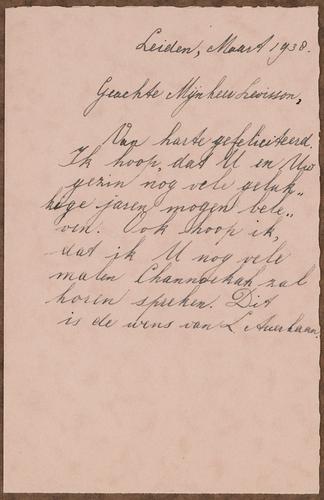 Leiden, Maart 1938.
Geachte Mijnheer Levisson,
Van harte gefeliciteerd.
Ik hoop, dat U en Uw
gezin nog vele geluk„
kige jaren mogen bele„
ven. Ook hoop ik,
dat ik U nog vele
malen Channoekah zal
horen spreken. Dit
is de wens van L. Auerhaan.